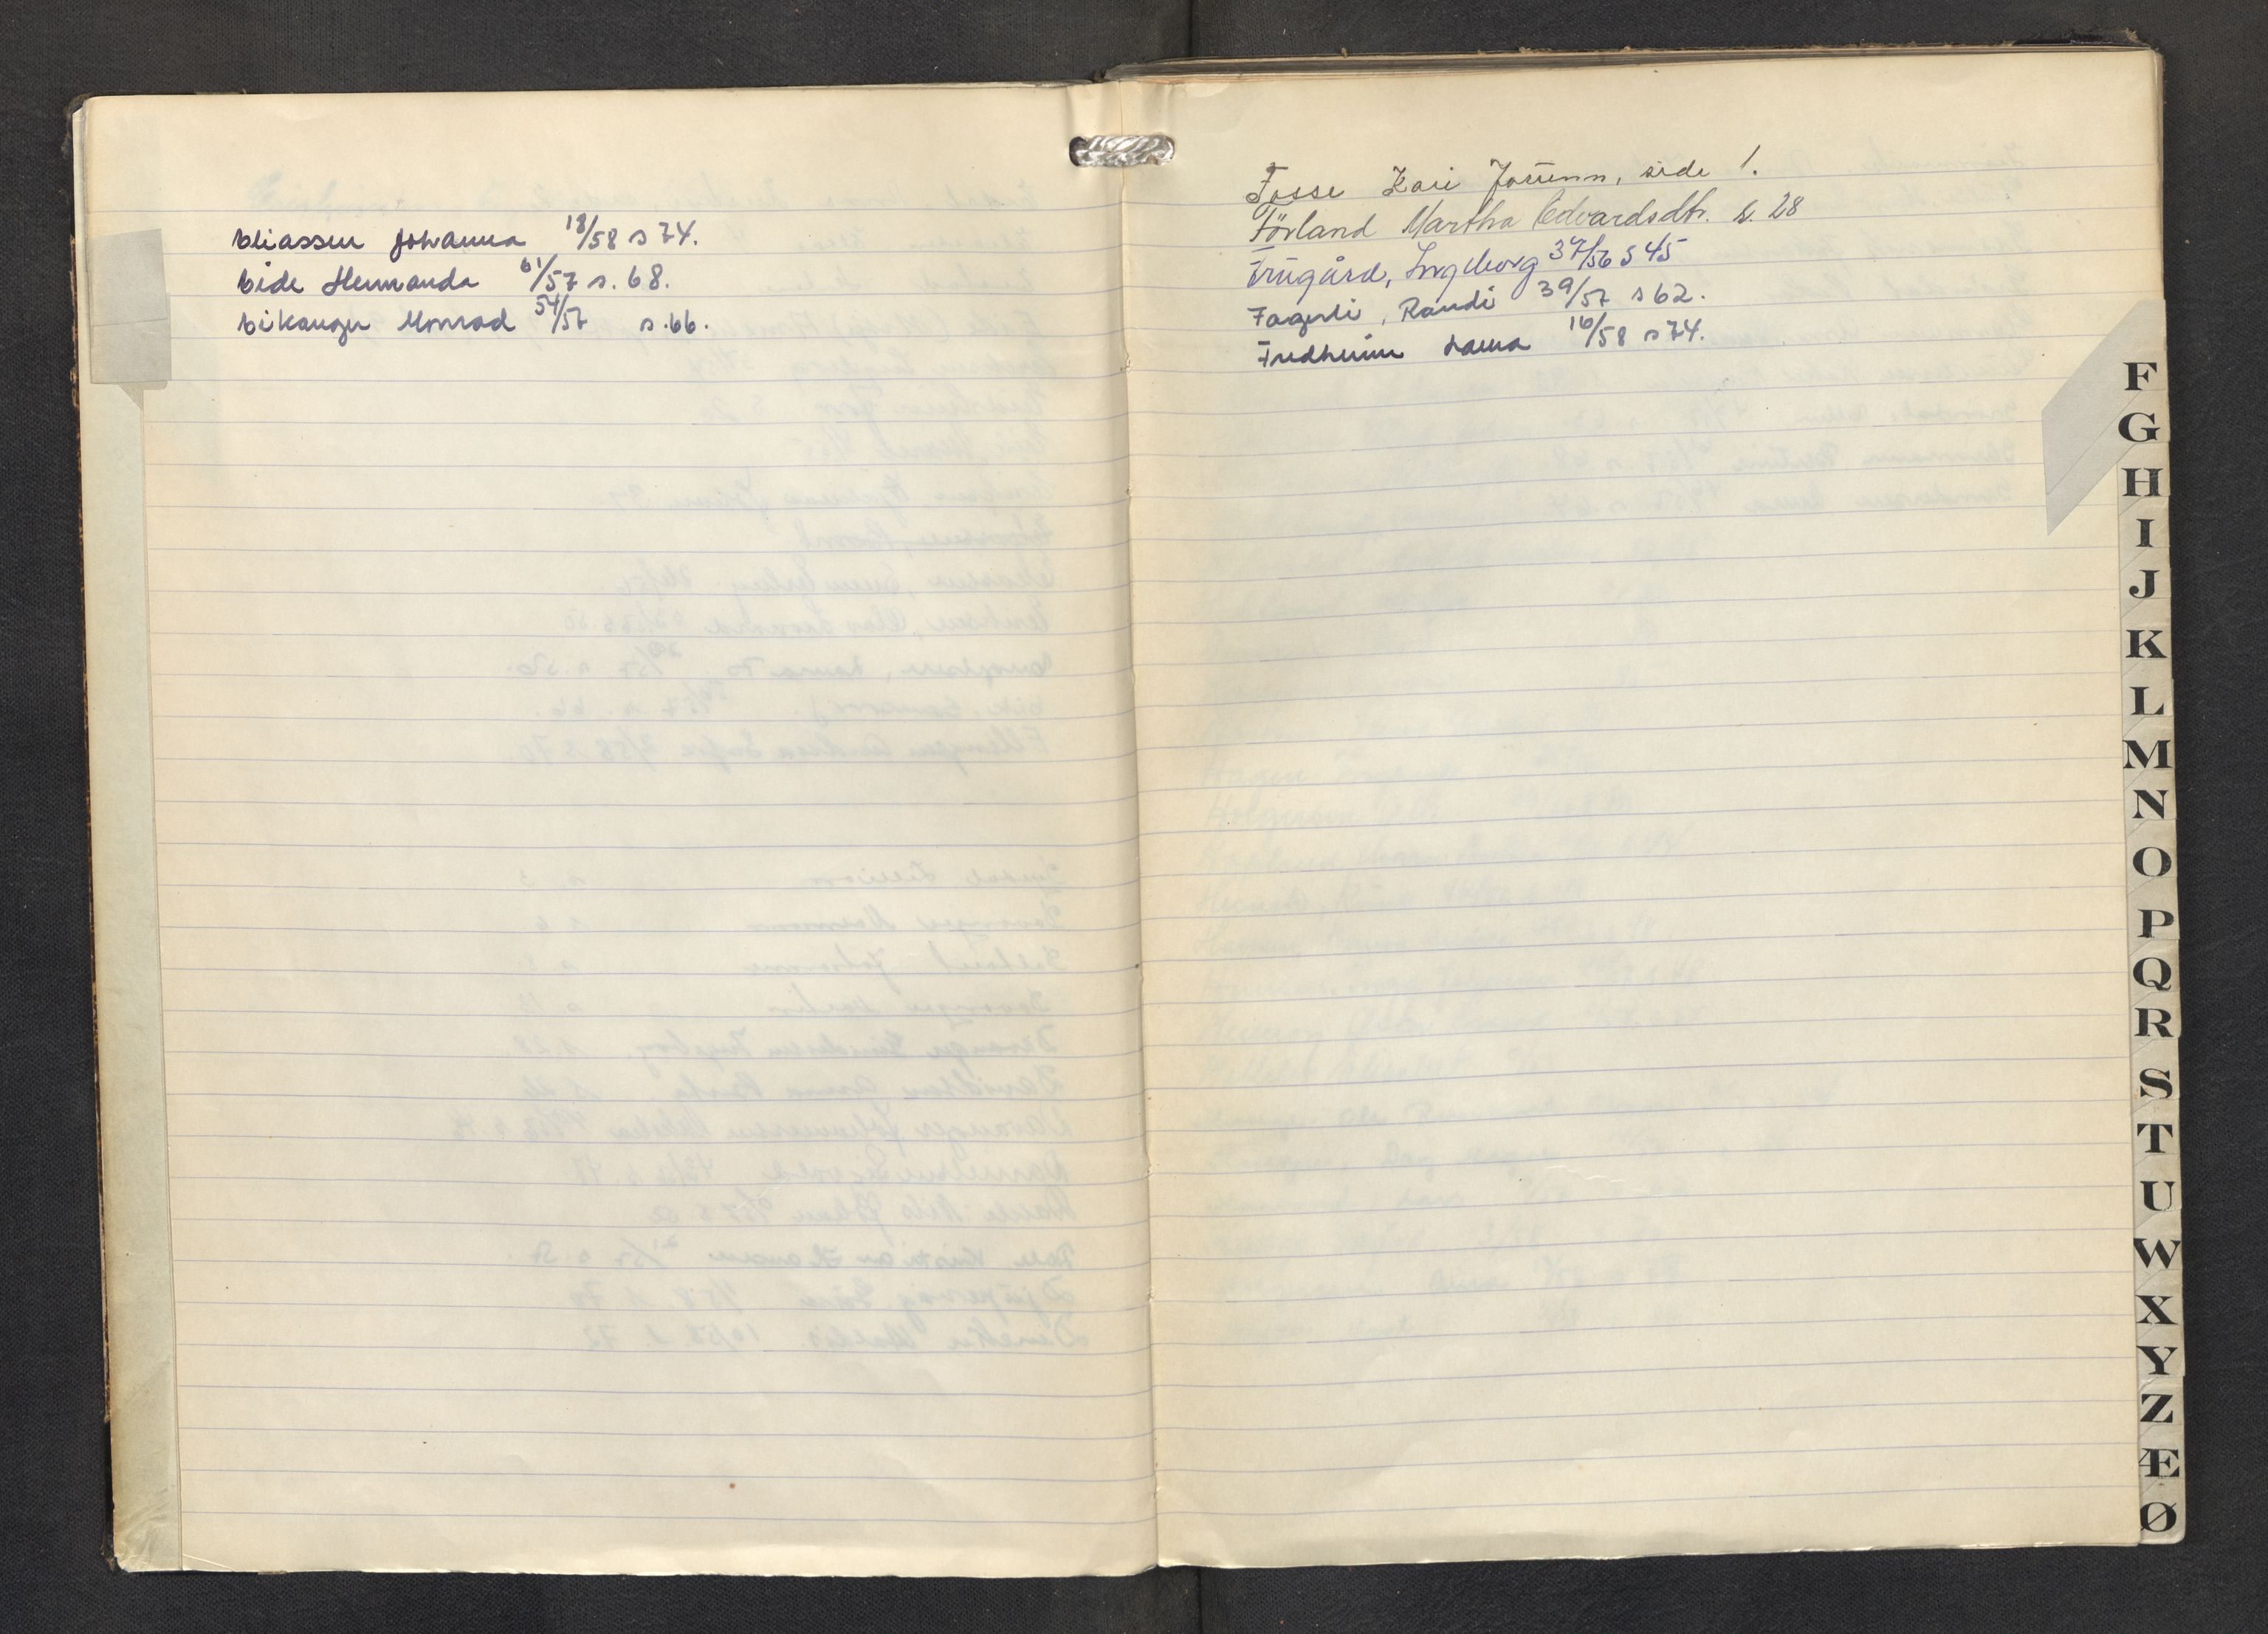 Eliassen Johanna 18/58 s 74.
Eide Hermanda 61/57 s. 68.
Eikanger Monrad 54/57 s. 66.
Fosse Kari Jorunn, side 1.
Förland Martha Edvardsdtr. s. 28
Ingeborg 37/56 s 45
Fagerli, Randi 39/57 s 62.
Fredheim Laura 16/58 s 74.
F
G
H
I
J
K
L
M
N
O
P
Q
R
S
T
U
W
X
Y
Z
Æ
Ø